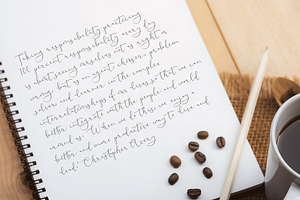 Taking responsibility practicing
100 percent responsibility every day
is about seeing ourselves not as right or
wrong, but as an agent, chooser, problem
solver, and learner in the complex
interrelationships of our lives so that we can
better integrate with the people and world
around us. When we do this, we enjoy a
better and more productive way to live and
lead." Christopher Avery